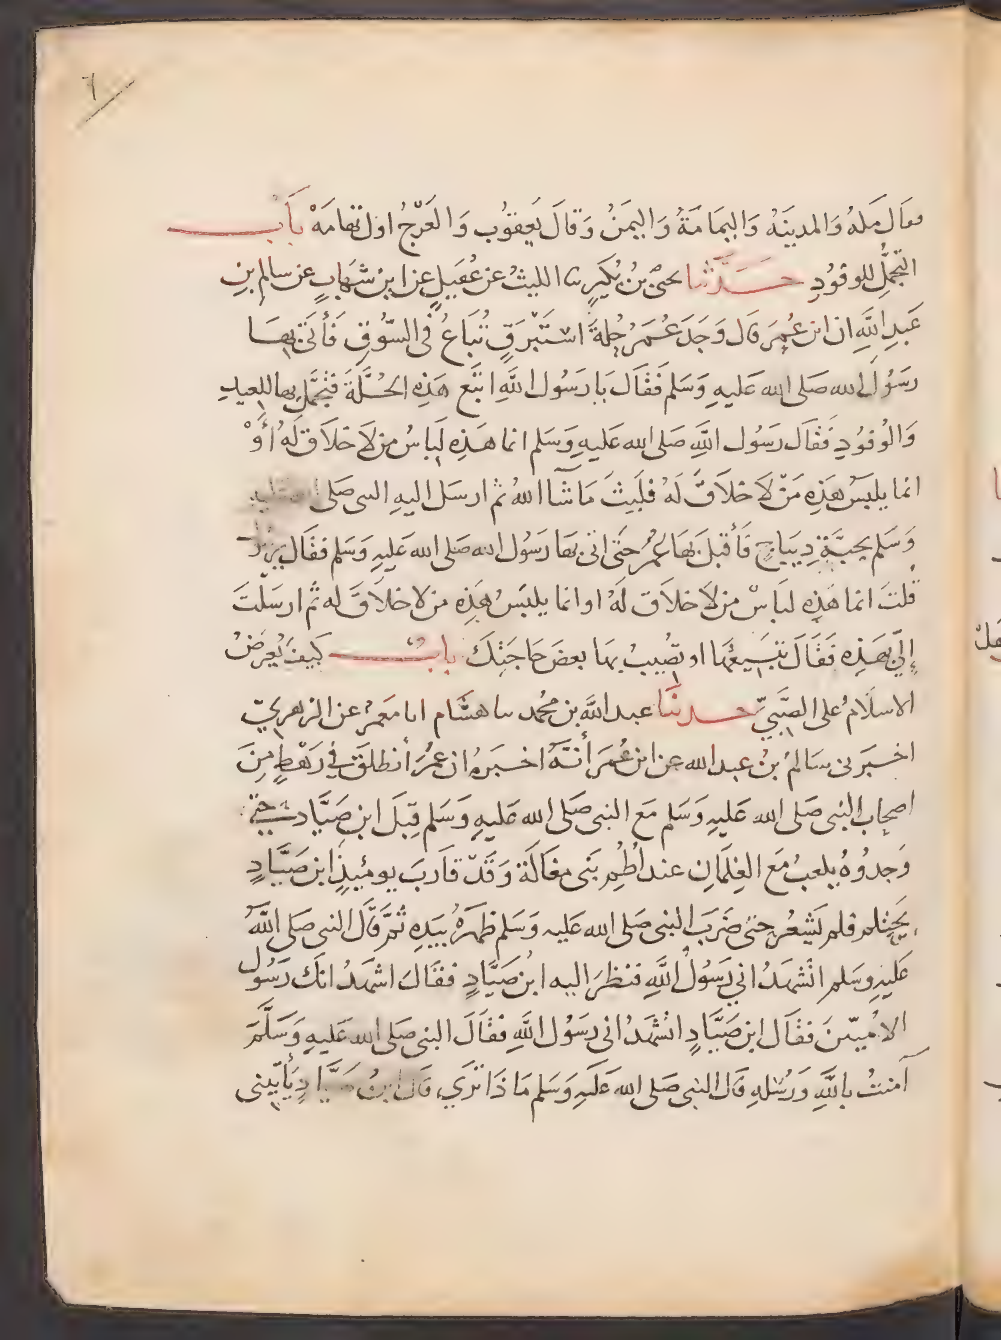 ٦
فقال مكة والمدينة وَاليمَامَةُ وَاليمَنُ وَقالَ يَعقوُب وَالعَرْجُ اول تهامَهْ بَابْ
التجمُّلِ للوفوُدِ حَدَّثنا يحيىٰ بنُ بُكَيرٍ ثنا الليثُ عن عُقَيلٍ عن ابن شهَابٍ عن سالم بنِ
عَبدِ اللَّهِ ان ابن عُمَرَ قال وَجَدَ عُمَرُ حُلةَ اسْتَبْرَقٍ تُبَاعُ فى السّوُقِ فَأتى بهَا
رسَوُلَ الله صَلى الله عَليهِ وَسَلم فَقَالَ يَا رَسوُل اللَّهِ ابتَع هَذِهِ الحُلَّةَ فتجمَّل بها للعيدِ
وَالوُفوُدِ فَقاَل رَسوُل اللَّهِ صَلى الله عَليهِ وَسَلم انما هَذِهِ لِبَاسُ من لَا خلَاقَ لَهُ أوْ
انما يلبَسُ هَذِهِ مَنْ لَا خلَاقَ لَهُ فلَبِثَ مَا شَآ اللهُ ثم ارسَل اليهِ النبى صَلى الله عليه
وَسَلم بجبَّةِ دِيبَاجٍ فَأقبلَ بهَا عُمرُ حتىٰ اتى بهَا رَسوُل الله صَلى الله عَليهِ وَسَلم فقَال يا رسول
قلتَ انما هَذِهِ لبَاسُ من لَا خلَاقَ لَهُ او انما يلبَسُ هَذِهِ من لا خلَاقَ له ثُم ارسَلتَ
إليَّ بهَذِهِ فَقَالَ تبيعُهَا او تُصِيبُ بهَا بعضَ حَاجَتِكَ بابُ كيَفَ يُعرَضُ
الاسلَامُ على الصَّبيِّ حدثنا عبد اللَّه بن محُمد ثنا هشَام انا مَعمرٌ عن الزهريّ
اخبَرَنى سَالمُ بنُ عبد الله عن ابن عُمَرَ أنَّهُ اخبَرهُ ان عمُرَ أنطلَقَ فى رَهْطٍ مِنَ
اصحاب النبى صَلى الله عَليهِ وَسَلم مَع النبى صَلى الله عَليهِ وَسَلم قِبَلَ ابن صَيَّاد حتى
وَجدوُهُ يلعبُ مَع الغِلمَانِ عند أُطُمِ بَنى مغَالَة وَقَدْ قاربَ يومئِذٍ ابن صَيَّادٍ
يَحتلم فلم يَشعُر حتىٰ ضَرَبَ النبى صَلى الله عَليه وَسَلم ظهرَهُ بيَدِهِ ثُمَّ قَالَ النبى صَلى اللَّهُ
عَليَهِ وسَلم اتشهَدُ انى رَسوُلُ اللَّهِ فَنظَرَ اليه ابنُ صَيَّادٍ فقَالَ اشهَدُ انكَ رَسوُل
الامُيّينَ فقَال ابن صَيَّادٍ اتشهَدُ انى رسَوُل اللَّهِ فقَالَ النبى صَلى الله عَليهِ وَسَلَّمَ
آمنتُ باللَّهِ وَرُسُلهِ قال النبى صَلى الله عَلَيهِ وَسَلم مَا ذَا تَرَي، قَال ابنُ صَيَّادٍ يَأتيِنى